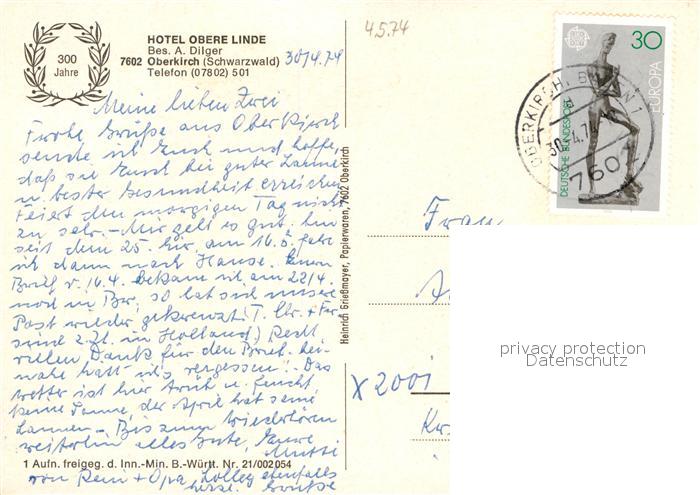 300
Jahre
HOTEL OBERE LINDE
Bes. A. Dilger
7602 Oberkirch (Schwarzwald)
Telefon (07802) 501
30/4.74
4.5.74
Meine lieben Zwei
Frohe Grüße aus Oberkirch
sende ich Euch und hoffe,
daß sie Euch bei guter Laune
u. bester Gesundheit erreichen
Feiert den morgigen Tag nicht
zu sehr. - Mir geht es gut, bin
seit dem 25. hier, am 16.5. fahre
ich dann nach Hause. Euren
Brief v. 16.4. bekam ich am 22/4.
noch in so hat sich unsere
Post wieder gekreuzt.
sind z. Zt. in Holland) Recht
vielen Dank für den Brief. bei-
nahe hätt ich's vergessen! Das
Wetter ist hier trüb u. feucht,
keine Sonne, der April hat seine
Launen. - Bis zum Wiederhören
weiterhin alles Gute, Eure
Mutti
von + Opa ebenfalls
herzl. Grüße
1 Aufn. freigeg. d. Inn.-Min. B.-Württ. Nr. 21/002054
Heinrich Grießmayer, Papierwaren, 7602 Oberkirch
30
EUROPA
DEUTSCHE BUNDESPOST
OBERKIRCH
30.-4.74
7602
Frau
X 2001
privacy protection
Datenschutz